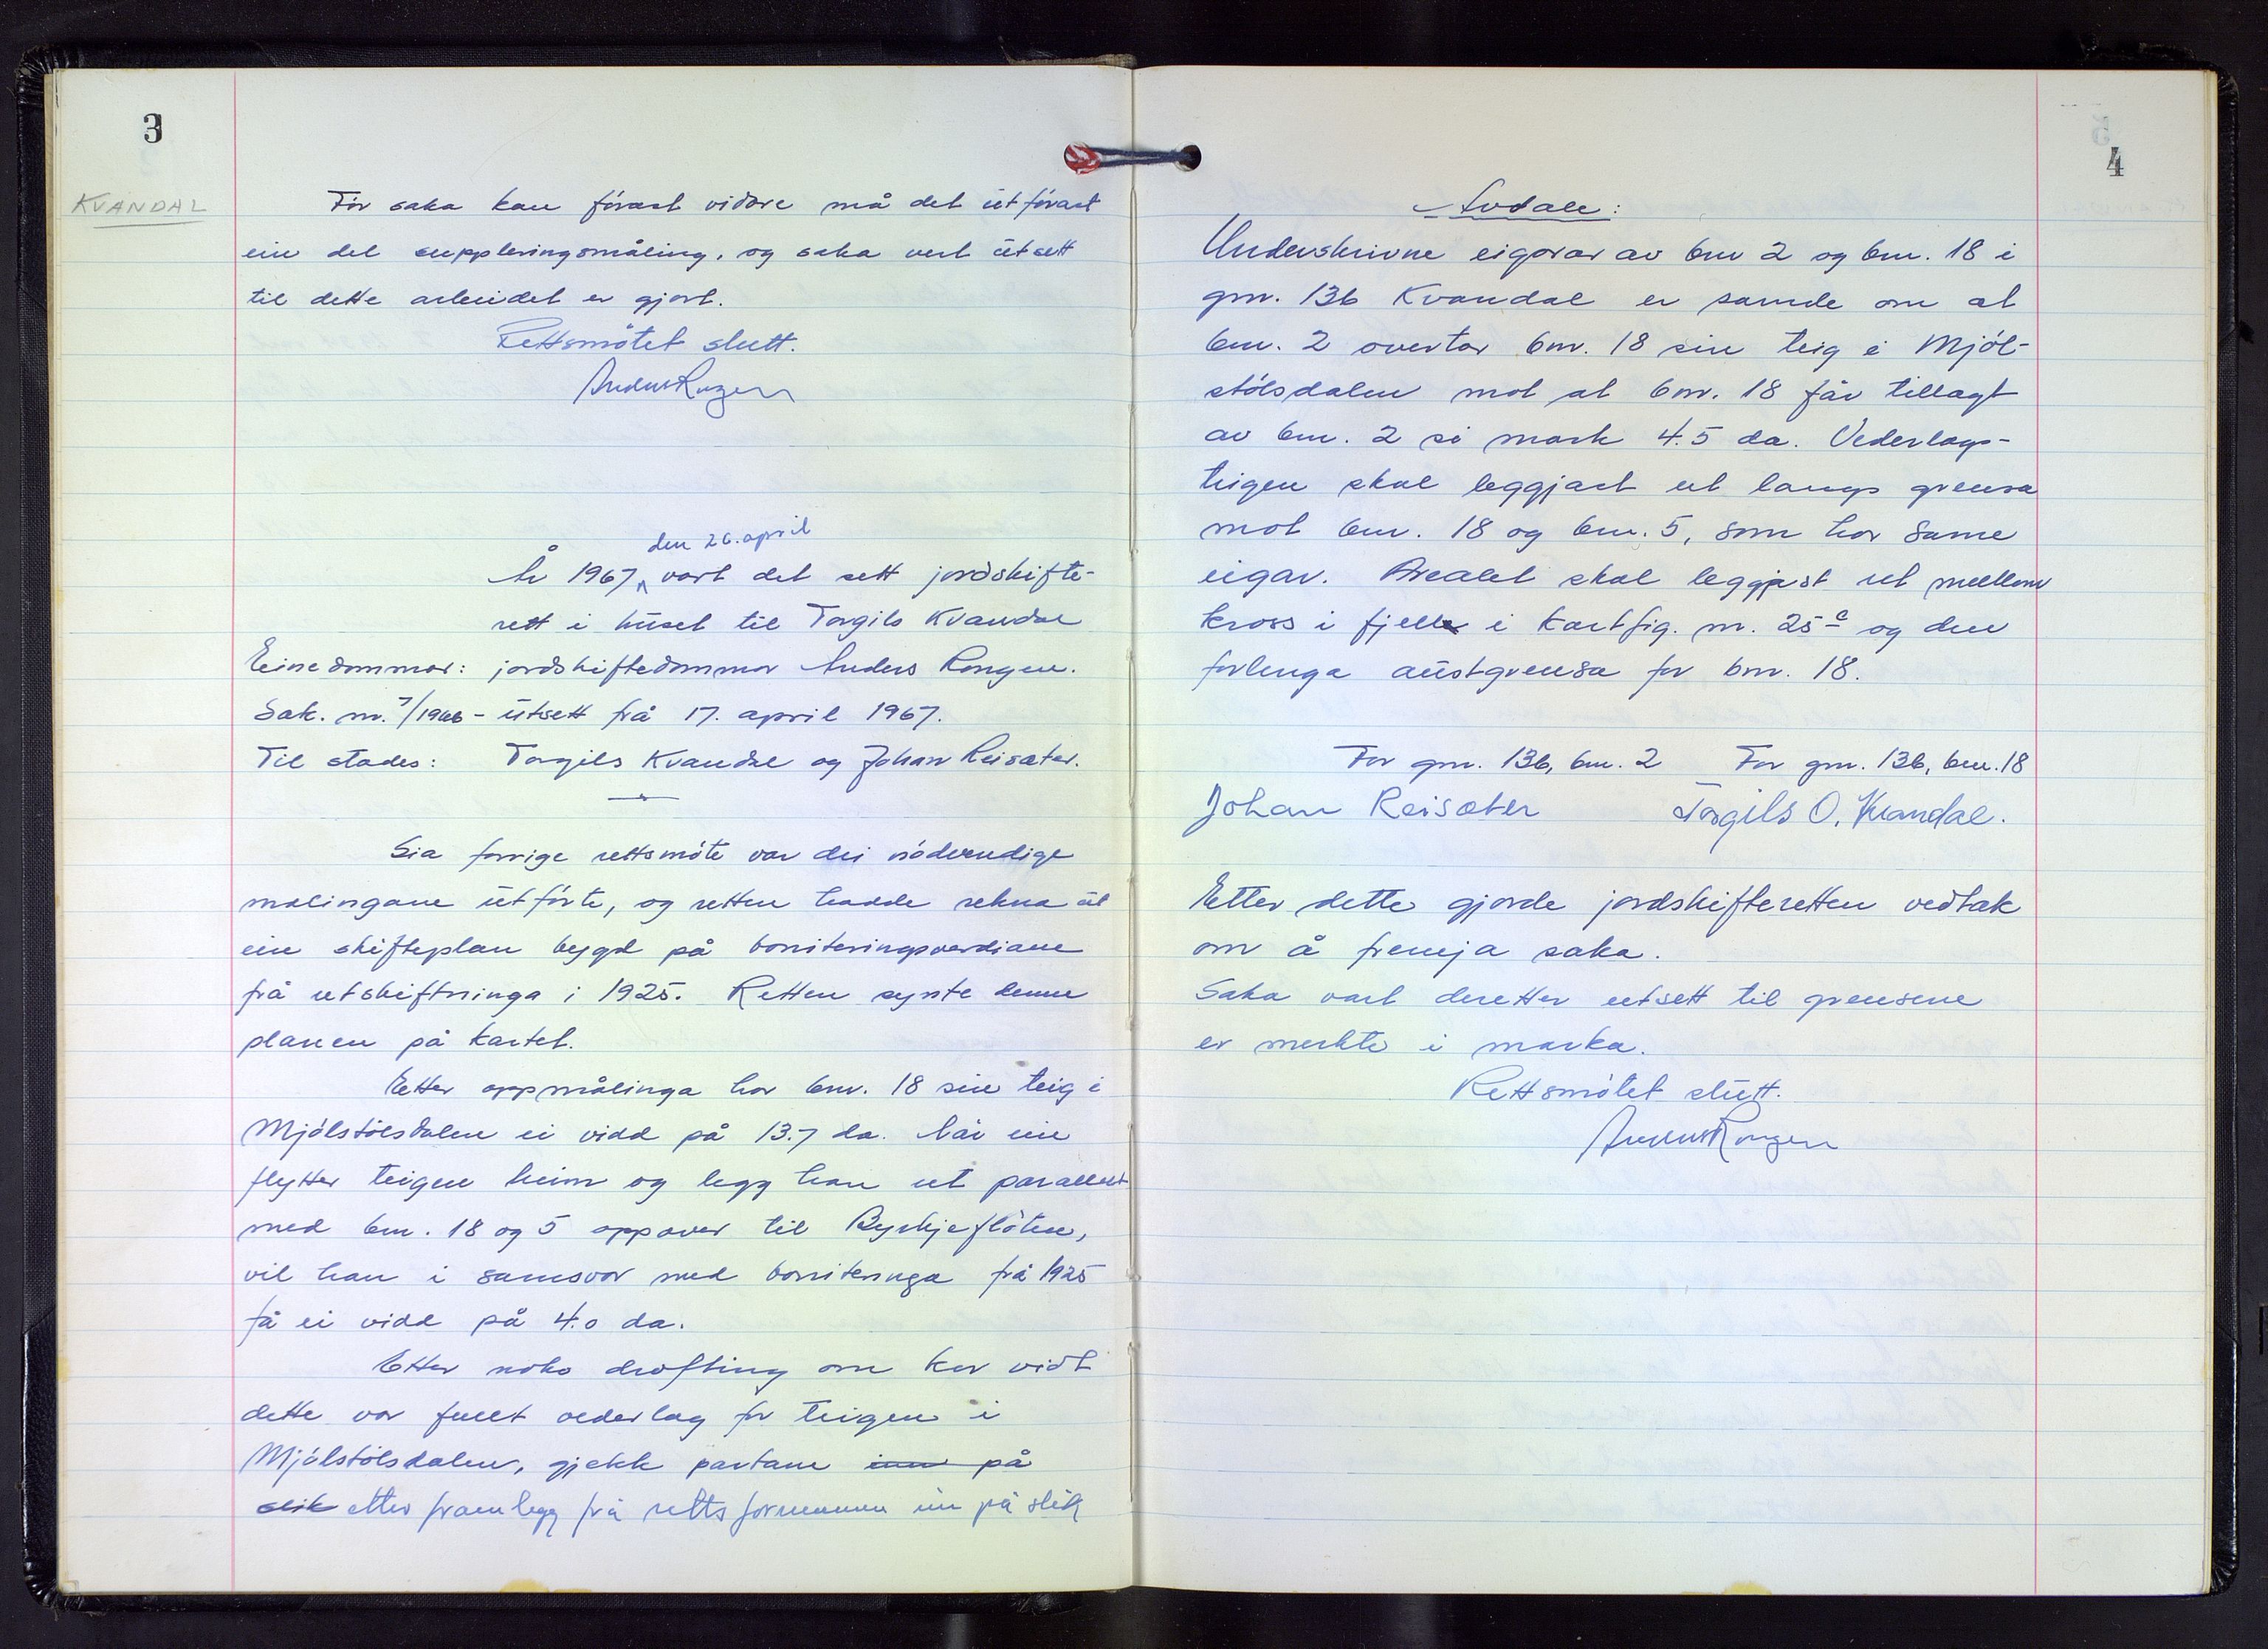 3
KVANDAL
Før saka kan førast vidare må det utførast
ein del suppleringsmåling, og saka vert utsett
til dette arbeidet er gjort.
Rettsmøtet slutt.
Anders Rongen
den 26. april
År 1967 vart det sett jordskifte-
rett i huset til Torgils Kvandal
Einedommar: jordskiftedommar Anders Rongen.
Sak. nr. 7/1966 - utsett frå 17. april 1967.
Til stades: Torgils Kvandal og Johan Reisæter.
Sia forrige rettsmøte var dei nødvendige
målingane utførte, og retten hadde rekna ut
ein skifteplan bygd på boniteringsverdiane
frå utskiftninga i 1925. Retten synte denne
planen på kartet.
Etter oppmålinga har bnr. 18 sin teig i
Mjølstølsdalen ei vidd på 13.7 da. Når ein
flytter teigen heim og legg han ut parallelt
med bnr. 18 og 5 oppover til Byrkjefløten,
vil han i samsvar med boniteringa frå 1925
få ei vidd på 4.0 da.
Etter noko drøfting om kor vidt
dette var fullt vederlag for teigen i
Mjølstølsdalen, gjekk partane inn på
slik etter framlegg frå rettsformannen inn på slik
4
Avdale:
Underskrivne eigarar av bnr 2 og bnr. 18 i
gnr. 136 Kvandal er samde om at
bnr. 2 overtar bnr. 18 sin teig i Mjøl-
stølsdalen mot at bnr. 18 får tillagt
av bnr. 2 si mark 4.5 da. Vederlags-
teigen skal leggjast ut langs grensa
mot bnr. 18 og bnr. 5, som har same
eigar. Arealet skal leggjast ut mellom
kross i fjell i kartfig. nr. 25c og den
forlenga austgrensa for bnr. 18.
For gnr. 136, bnr. 2 For gnr. 136, bnr. 18
Johan Reisæter Torgils O. Kvandal.
Etter dette gjorde jordskifteretten vedtak
om å fremja saka.
Saka vart deretter utsett til grensene
er merkte i marka.
Rettsmøtet slutt.
Anders Rongen